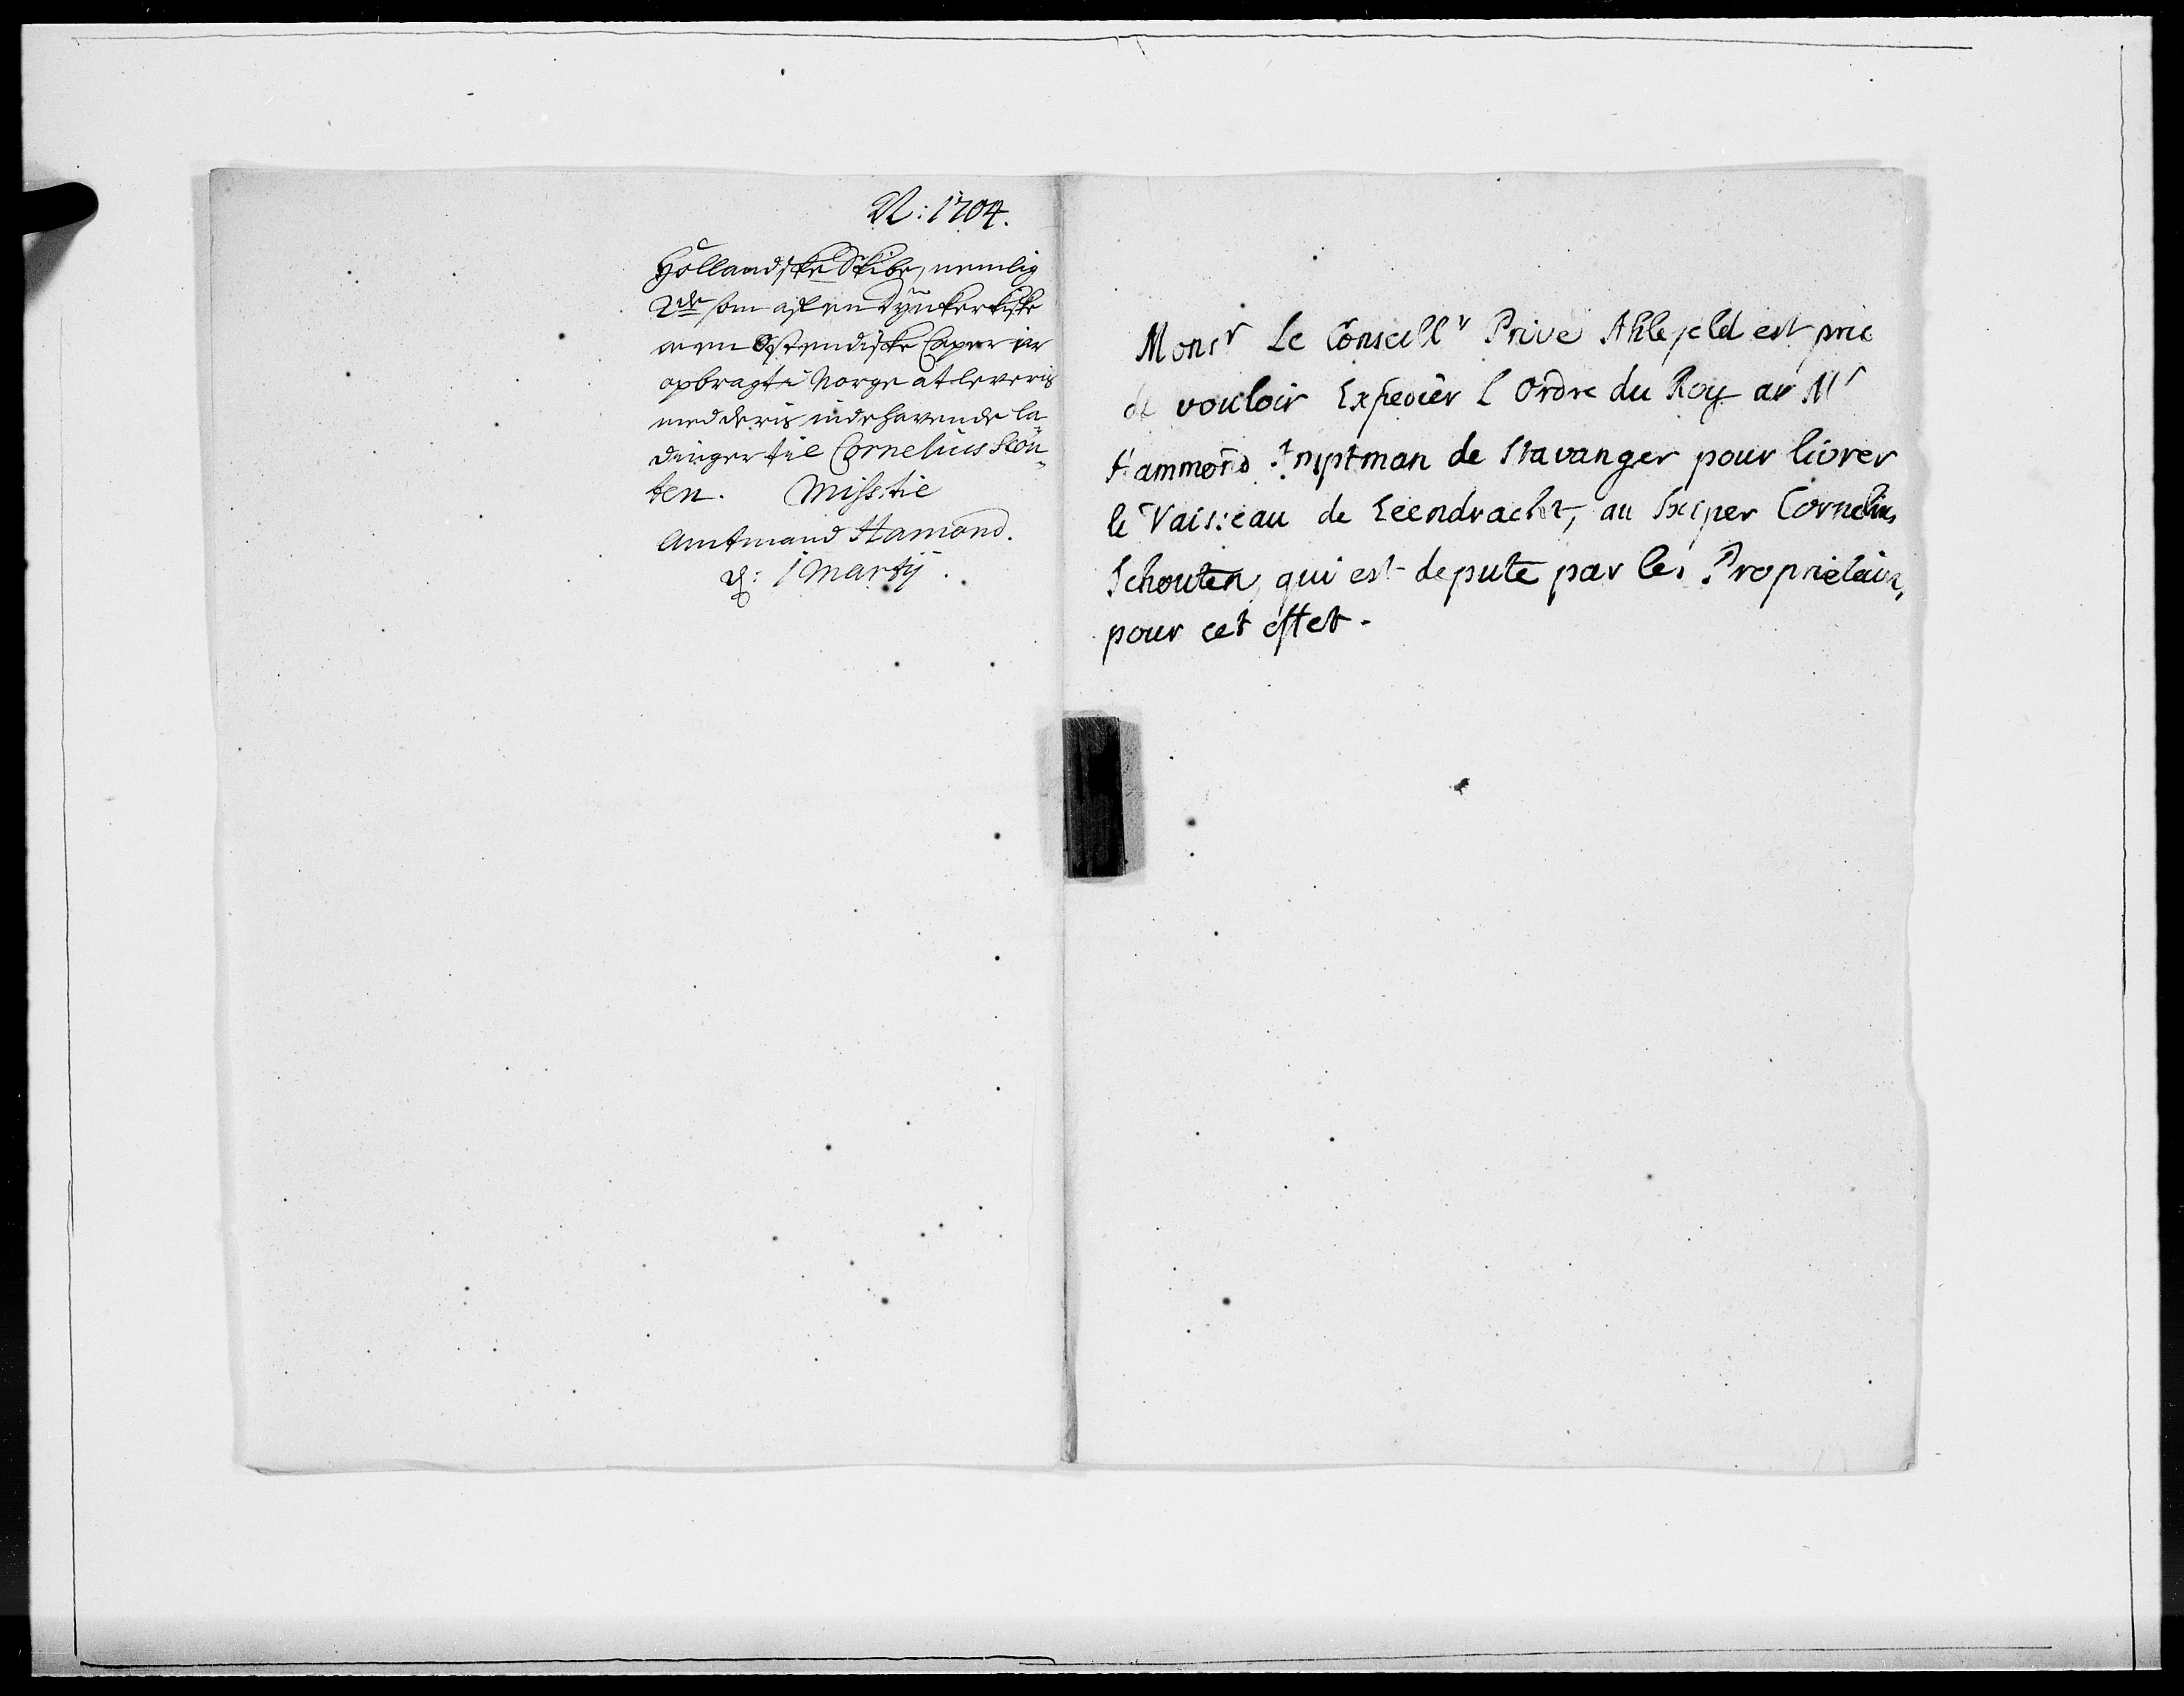 N: 1704.
Hollandske Skibe, nemlig
2de som af en Dynkerkiske
oc en Ostendiske Caper ere
opbragt i Norge at leveris
med deris indehavende la¬
dinger til Cornelius Skou¬
ten. Miss: til
Amtmand Hamond.
d: 1 Martij.
Monsr Le Conseillr Privé Ahlefeld est prie
de vouloir Expedier l Ordre du Roy au Mr
Hammond Amptman de Stavanger pour livrer
le Vaisseau de Eeendracht, au Sciper Cornelius
Schouten, qui est depute par les Proprietaires,
pour cet effet.